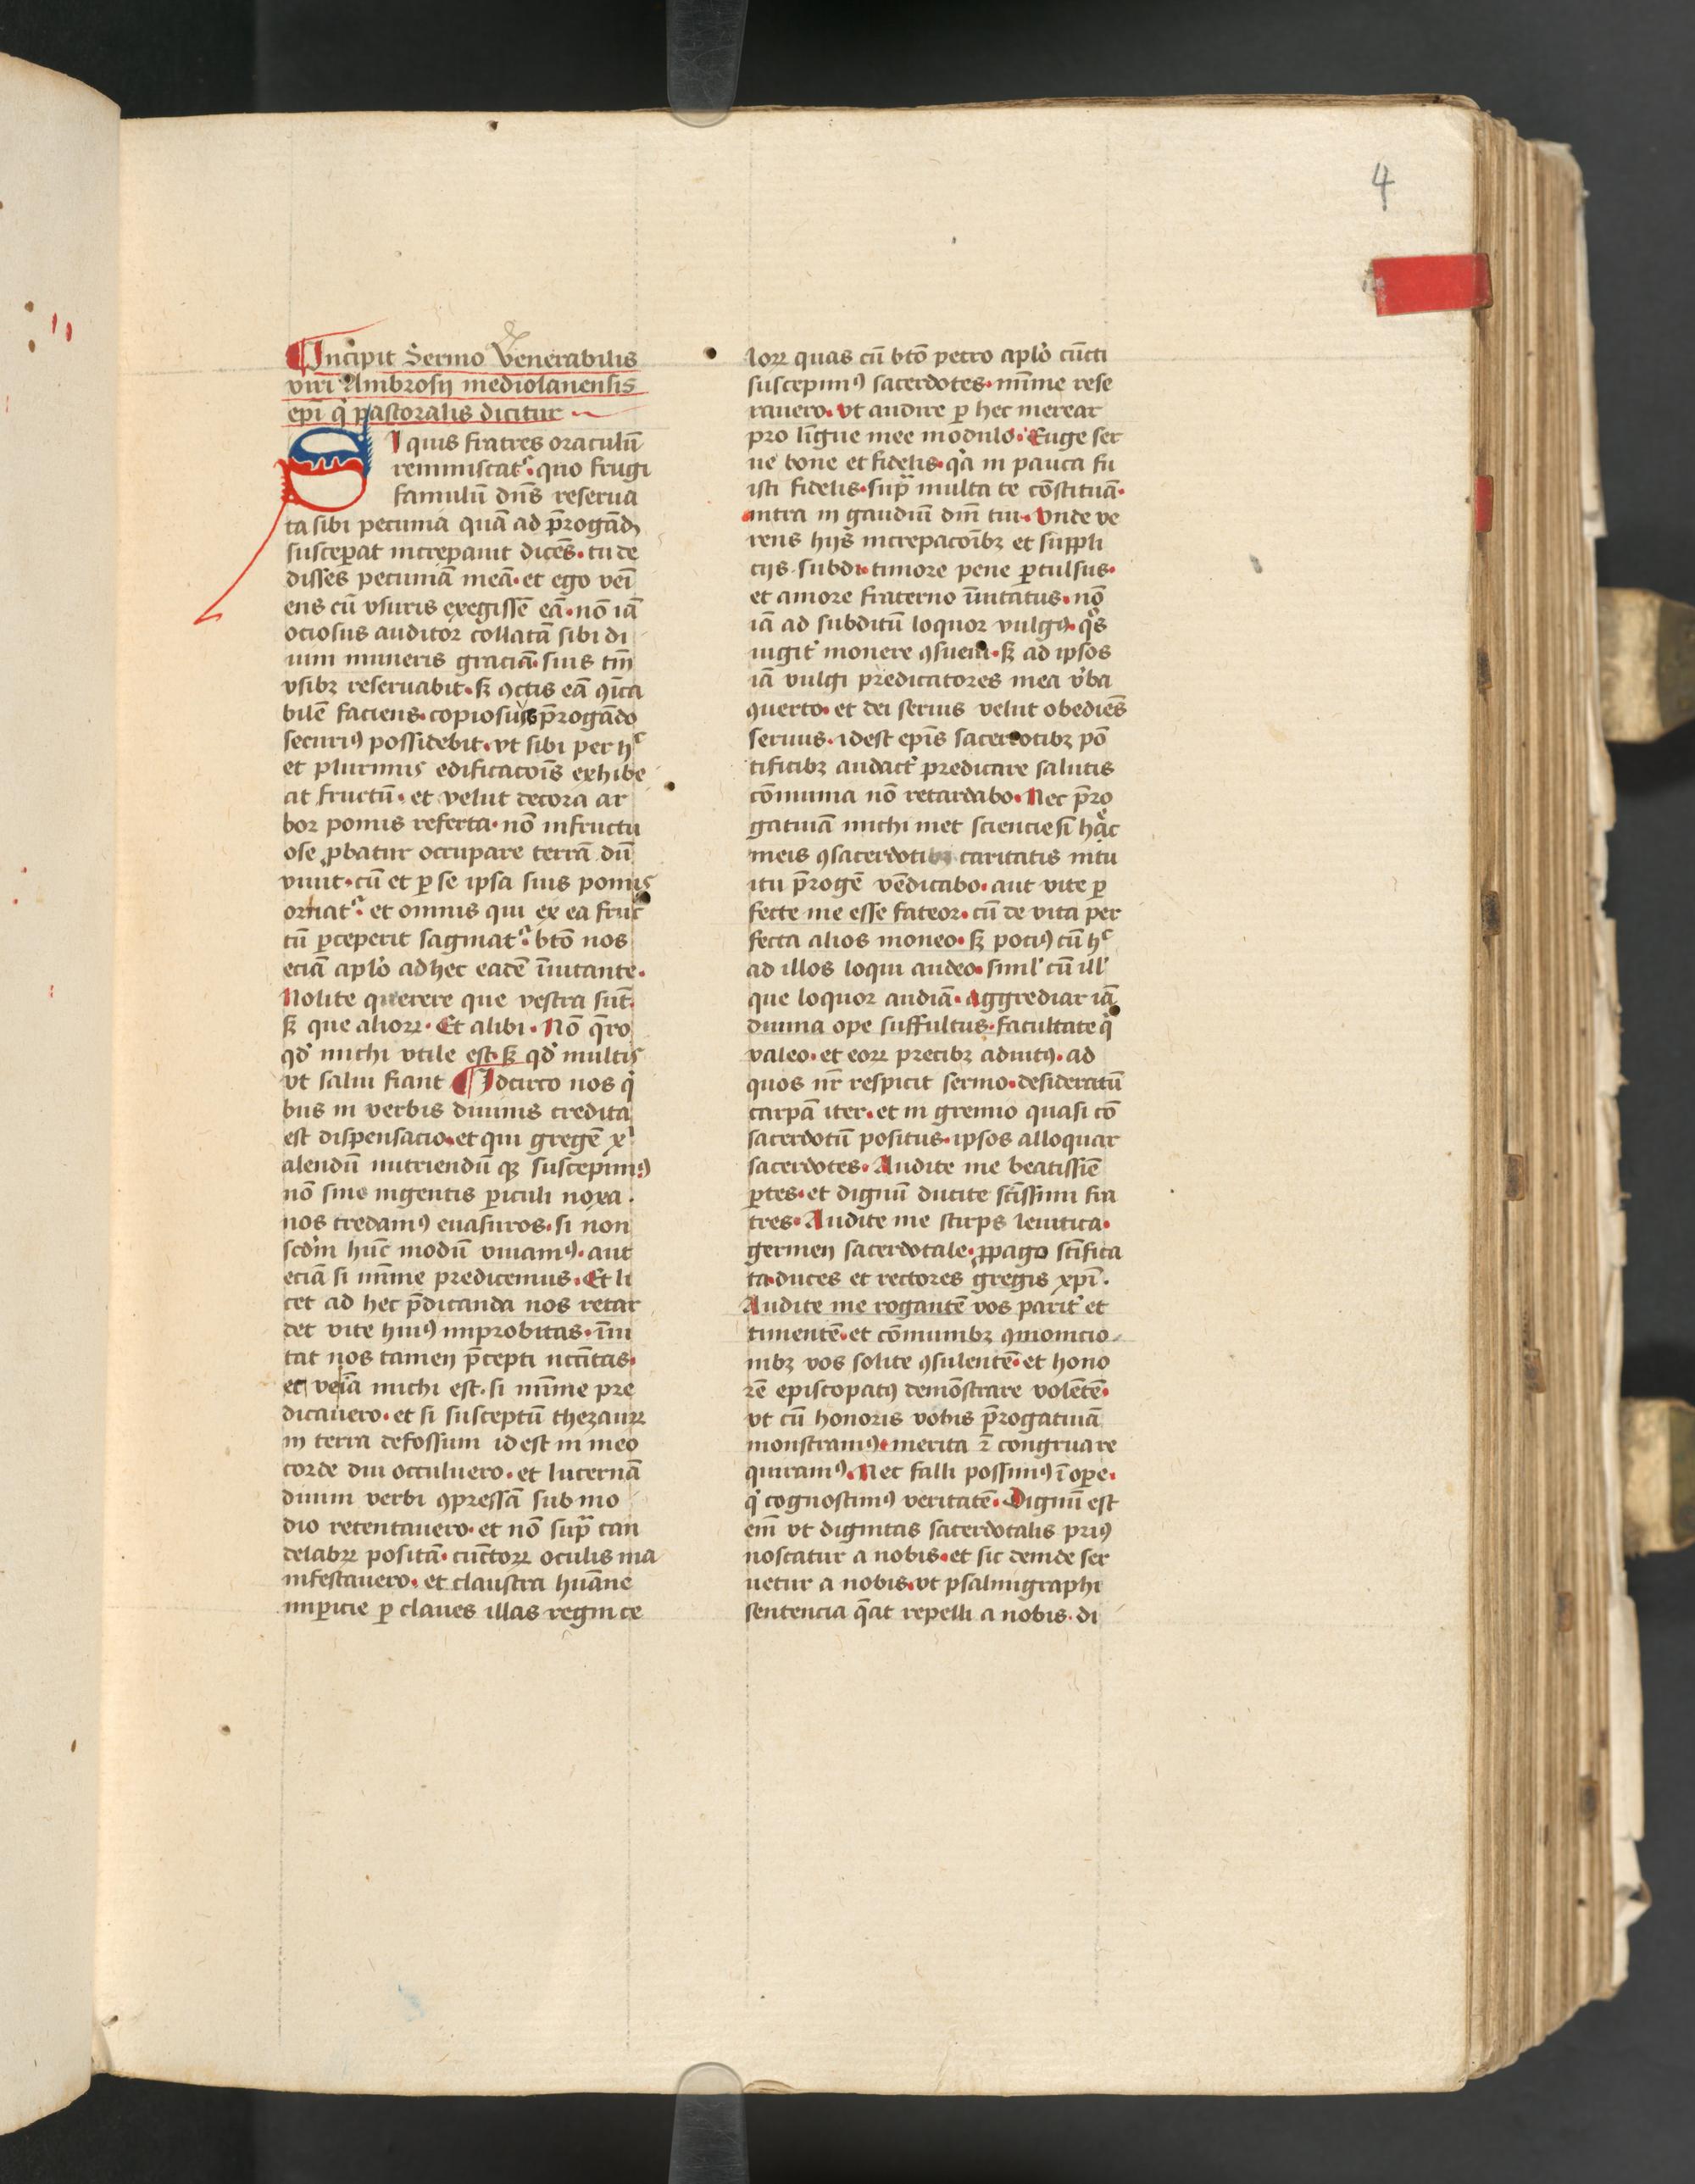 4
Incipit Sermo Venerabilis
viri Ambrosij mediolanensis
epī q̇ pastoralis dicitur
SI quis fratres oraculū
reminiscatᷣ. quo frugi
famulū dn̄s reserua
ta sibi pecunia quā ad p̄rogādꝫ
susceꝑat increpauit dicēs. tu de
disses pecuniā meā. et ego veī
ens cū vsuris exegissē eā. nō iā
ociosus auditor collatā sibi di
uini muneris graciā. suis tm̄
vsibꝫ reseruabit. sꝫ ꝯctis eā ꝯīca
bilē faciens. copiosiꝰ p̄rogādo
securiꝰ possidebit. vt sibi per hᶜ
et plurimis edificacoīs exhibe
at fructū. et velut decora ar
bor pomis referta. nō infructu
ose ꝓbatur occupare terrā dū
viuit. cū et ꝑ se ipsa suis pomis
ornatᷣ. et omnis qui ex ea fruc
tū ꝑceperit saginatᷣ. btō nos
eciā aplo̓ ad hec eadē īuitante.
Nolite querere que vestra sūt.
sꝫ que alioꝝ. Et alibi. Nō q̄ro
qd̓ michi vtile est. sꝫ qd̓ multis
vt salui fiant Idcirco nos q̇
bus in verbis diuinis credita
est dispensacio. et qui gregē xⁱ
alendū nutriendū qꝫ suscepimꝰ
nō sine ingentis ꝑiculi noxa.
nos credamꝰ euasuros. si non
scdm̄ hūc modū viuamꝰ. aut
eciā si mīme predicemus. Et li
cet ad hec p̄dicanda nos retar
det vite huiꝰ improbitas. īui
tat nos tamen p̄cepti nccītas.
et veīa michi est. si mīme pre
dicauero. et si susceptū thezauꝝ
in terra defossum id est in meo
corde diu occuluero. et lucernā
diuini verbi ꝯpressā sub mo
dio retentauero. et nō supᵃ can
delabꝝ positā. cūctoꝝ oculis ma
nifestauero. et claustra huāne
imꝑicie ꝑ claues illas regni ce
loꝝ quas cū btō petro aplo̓ cūcti
suscepimꝰ sacerdotes. mīme rese
rauero. vt audire ꝑ hec merear
pro līgue mee modulo. Euge ser
ue bone et fidelis. qa̓ in pauca fu
isti fidelis. supᵃ multa te cōstituā.
intra in gaudiū dnī tui. Vnde ve
rens hijs increpacoībꝫ et suppli
cijs subdi. timore pene ꝑculsus.
et amore fraterno īuitatus. nō
iā ad subditū loquor vulgꝰ. qͦs
iugit̓ monere ꝯsueui. sꝫ ad ipsos
iā vulgi predicatores mea v̓ba
ꝯuerto. et dei seruis velut obediēs
seruus. id est epīs sacerdotibꝫ pō
tificibꝫ audact̓ predicare salutis
cōmunia nō retardabo. Nec p̄ro
gatiuā michi met sciencie sī hāc
meis ꝯsacerdotibꝫ caritatis intu
itu p̄rogē vēdicabo. aut vite ꝑ
fecte me esse fateor. cū de vita per
fecta alios moneo. sꝫ pociꝰ cū hᶜ
ad illos loqui audeo. simĺ cū illˡ
que loquor audiā. Aggrediar iā
diuina ope suffultus. facultate q̇
valeo. et eoꝝ precibꝫ adiutꝰ. ad
quos nr̄ respicit sermo. desideratū
carpā iter. et in gremio quasi cō
sacerdotū positus. ipsos alloquar
sacerdotes. Audite me beatissīe
ꝑtes. et dignū ducite scīssimi fra
tres. Audite me stirps leuitica.
germen sacerdotale. ꝓpago scīfica
ta. duces et rectores gregis xpī.
Audite me rogantē vos parit̓ et
timentē. et cōmunibꝫ ꝯmonicio
nibꝫ vos solite ꝯsulentē. et hono
rē episcopatꝰ demōstrare volētē.
vt cū honoris vobis p̄rogatiuā
monstramꝰ. merita ⁊̄ congrua re
quiramꝰ. Nec falli possimꝰ ī oꝑe.
q̇ cognoscimꝰ veritatē. Dignū est
em̄ vt dignitas sacerdotalis priꝰ
noscatur a nobis. et sic deinde ser
uetur a nobis. vt psalmigraphi
sentencia q̄at repelli a nobis. di